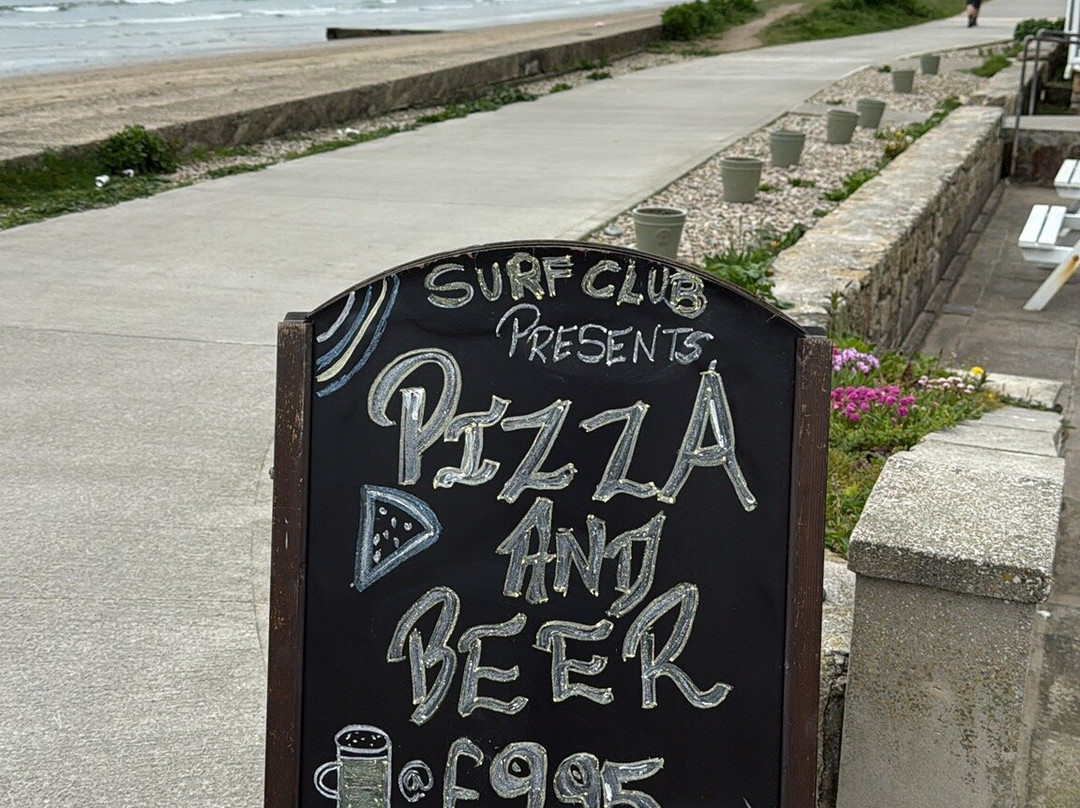 SURF CLUB
PRESENTS
PIZZA
AND
BEER
@ £9.95